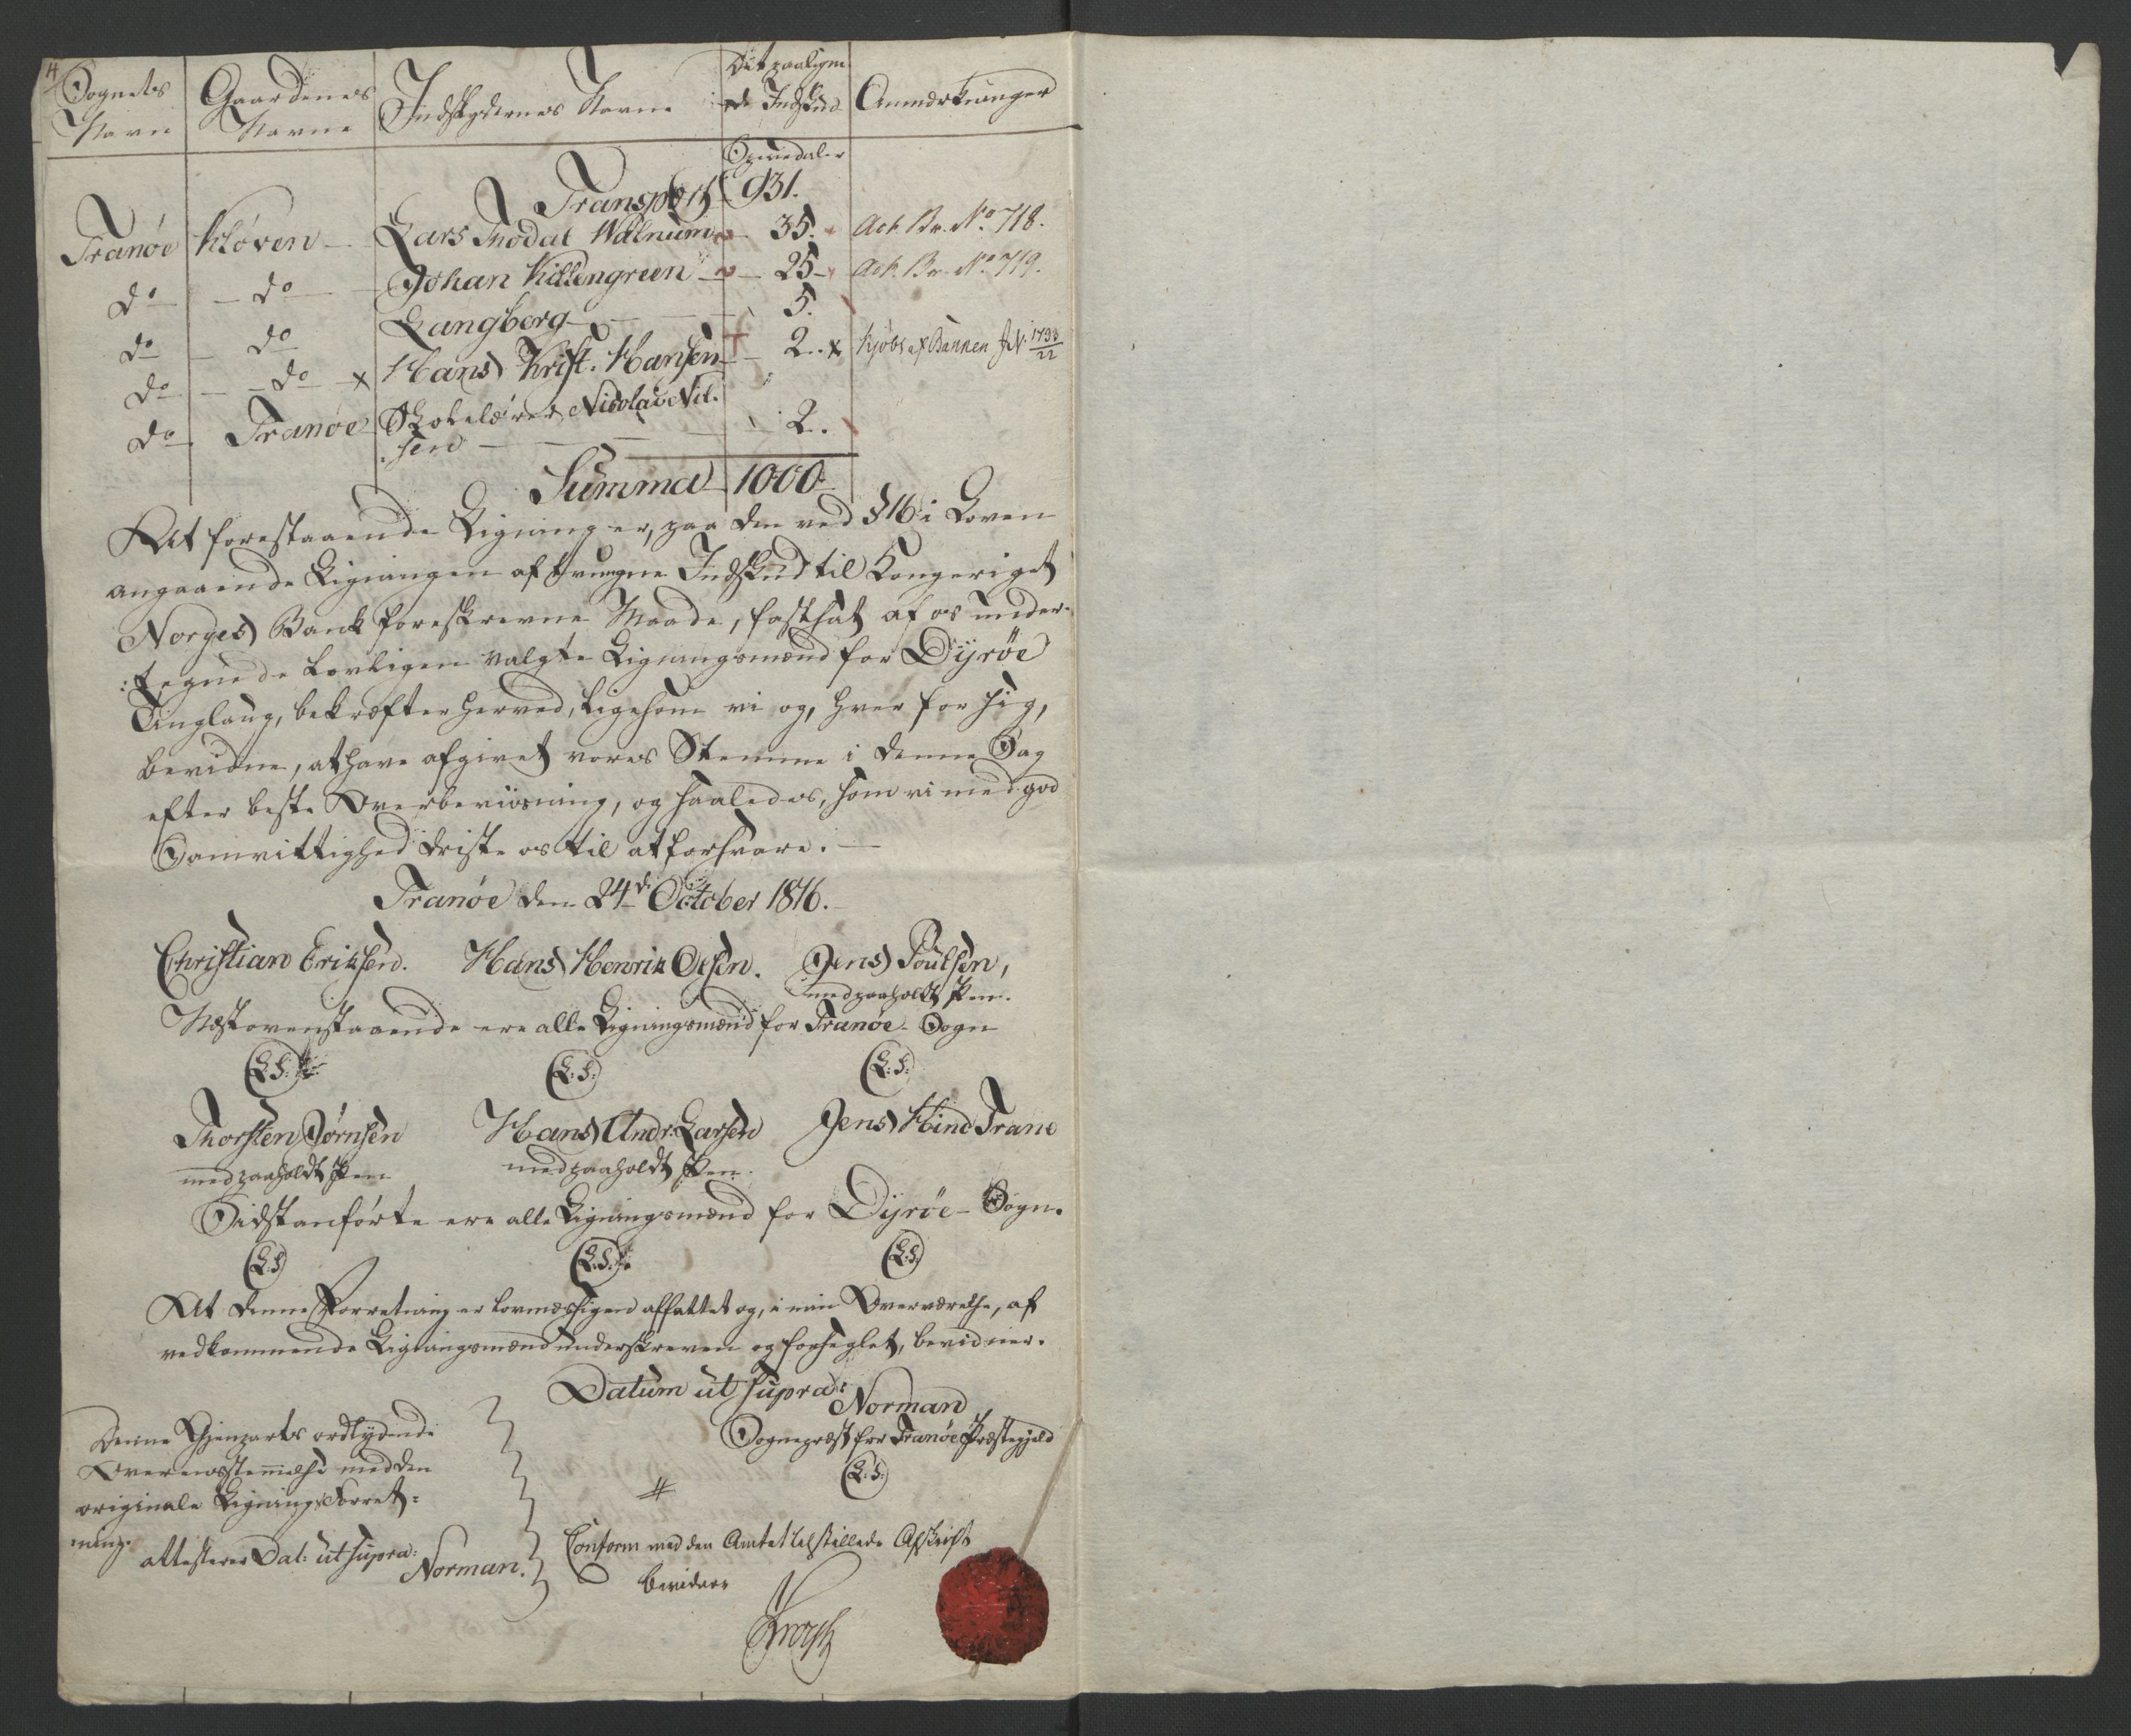 4
Sognets Navn | Gaardenes Navne | Indskydernes Navne | Det paalignede Indskud | Anmærkninger
Speciedaler
Transport 931.
Tranöe | Klöven | Lars Thodal Walnum | 35. | Act. Br. No. 718.
do | do | Johan Killengreen | 25 | Act. Br. No. 719.
do | do | Langberg | 5.
do | do x | Hans Krist. Hansen | 2. x | Kjöbt af Banken 1793/22
do | Tranöe | Skolelærer Nicolai Nil-
sen | 2.
Summa 1000
At forestaaende Ligning er, paa den ved § 16 i Loven
angaaende Ligningen af tvungne Indskud til Kongeriget
Norges Bank foreskrevne Maade, fastsat af os under-
:tegnede lovligen valgte Ligningsmænd for Dyröe
Tinglaug, bekræfter herved, ligesom vi og, hver for sig,
bevidne, at have afgivet vores Stemme i denne Sag
efter beste Overbeviisning, og saaledes, som vi med god
Samvittighed driste os til at forsvare.
Tranöe den 24de October 1816.
Christian Eriksen. Hans Henrik Olsen. Jens Poulsen,
med paaholdt Pen.
Næstovenstaaende ere alle Ligningsmænd for Tranöe Sogn
(L.S.) (L.S.) (L.S.)
Thorsten Jörnsen Hans Andr. Larsen Jens Hind Trane
med paaholdt Pen med paaholdt Pen.
Sidstanförte ere alle Ligningsmænd for Dyröe Sogn.
(L.S) (L.S.) (L.S.)
At denne Forretning er lovmæssigen affattet og, i min Overværelse, af
vedkommende Ligningsmænd underskreven og forseglet, bevidner.
Datum ut supra.
Norman
Sognepræst for Tranöe Præstegjeld
(L.S.)
Denne Gjenparts ordlydende
Overensstemmelse med den
originale Lignings Forret=
ning.
attesterer Dat: ut supra: Norman.
Conform med den Amtet tilstillede Afskrift
bevidner
Krogh